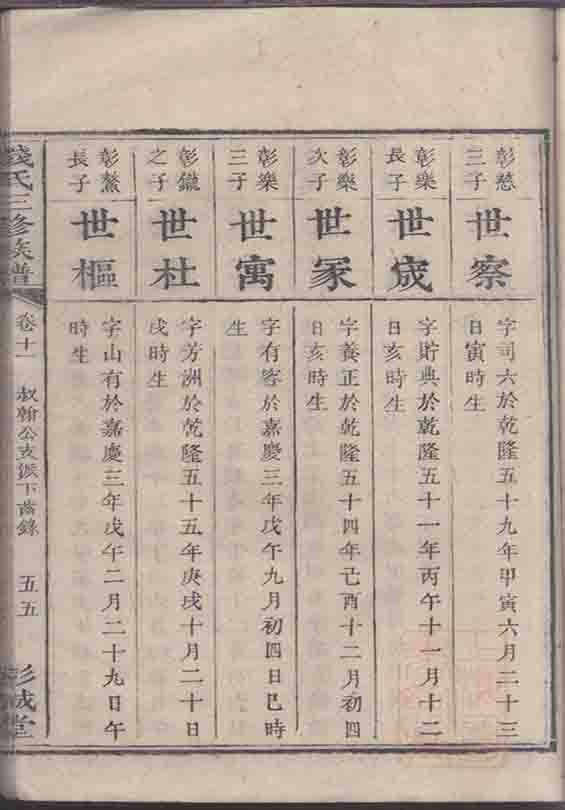 彰慈
三子
世察
字司六於乾隆五十九年甲寅六月二十三
日寅時生
彰樂
長子
世宬
字貯典於乾隆五十一年丙午十一月十二
日亥時生
彰樂
次子
世冢
字養正於乾隆五十四年己酉十二月初四
日亥時生
彰樂
三子
世寓
字有容於嘉慶三年戊午九月初四日巳時
生
彰鐵
之子
世杜
字芳洲於乾隆五十五年庚戌十月二十日
戌時生
彰鰲
長子
世樞
字山有於嘉慶三年戊午二月二十九日午
時生
錢氏三修族譜
卷十一
叔翰公支派下齒錄
五五
彭城堂